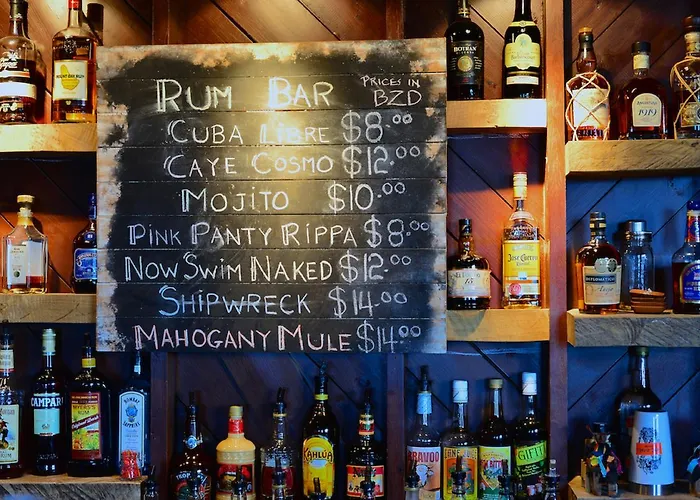 RUM BAR
PRICES IN
BZD
CUBA LIBRE $8.00
CAYE COSMO $12.00
MOJITO $10.00
PINK PANTY RIPPA $8.00
NOW SWIM NAKED $12.00
SHIPWRECK $14.00
MAHOGANY MULE $14.00
BOTRAN
1919
Jose Cuervo
CAMPARI
MYERS'S RUM
BOMBAY
SAPPHIRE
KAHLÚA
BRAVOO
GIFFARD